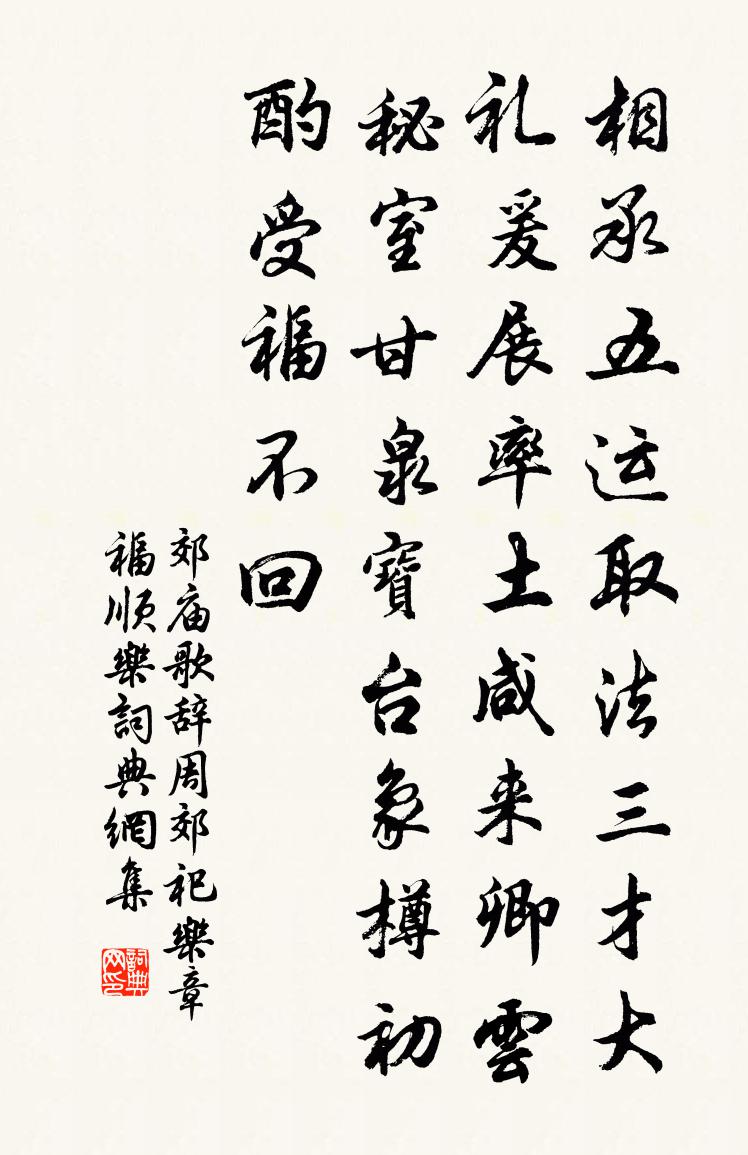 相承五运取法三才大
礼爰展率土咸来卿雲
秘室甘泉寶台象樽初
酌受福不回
郊庙歌辞周郊祀樂章
福順樂詞典網集
詞典网印